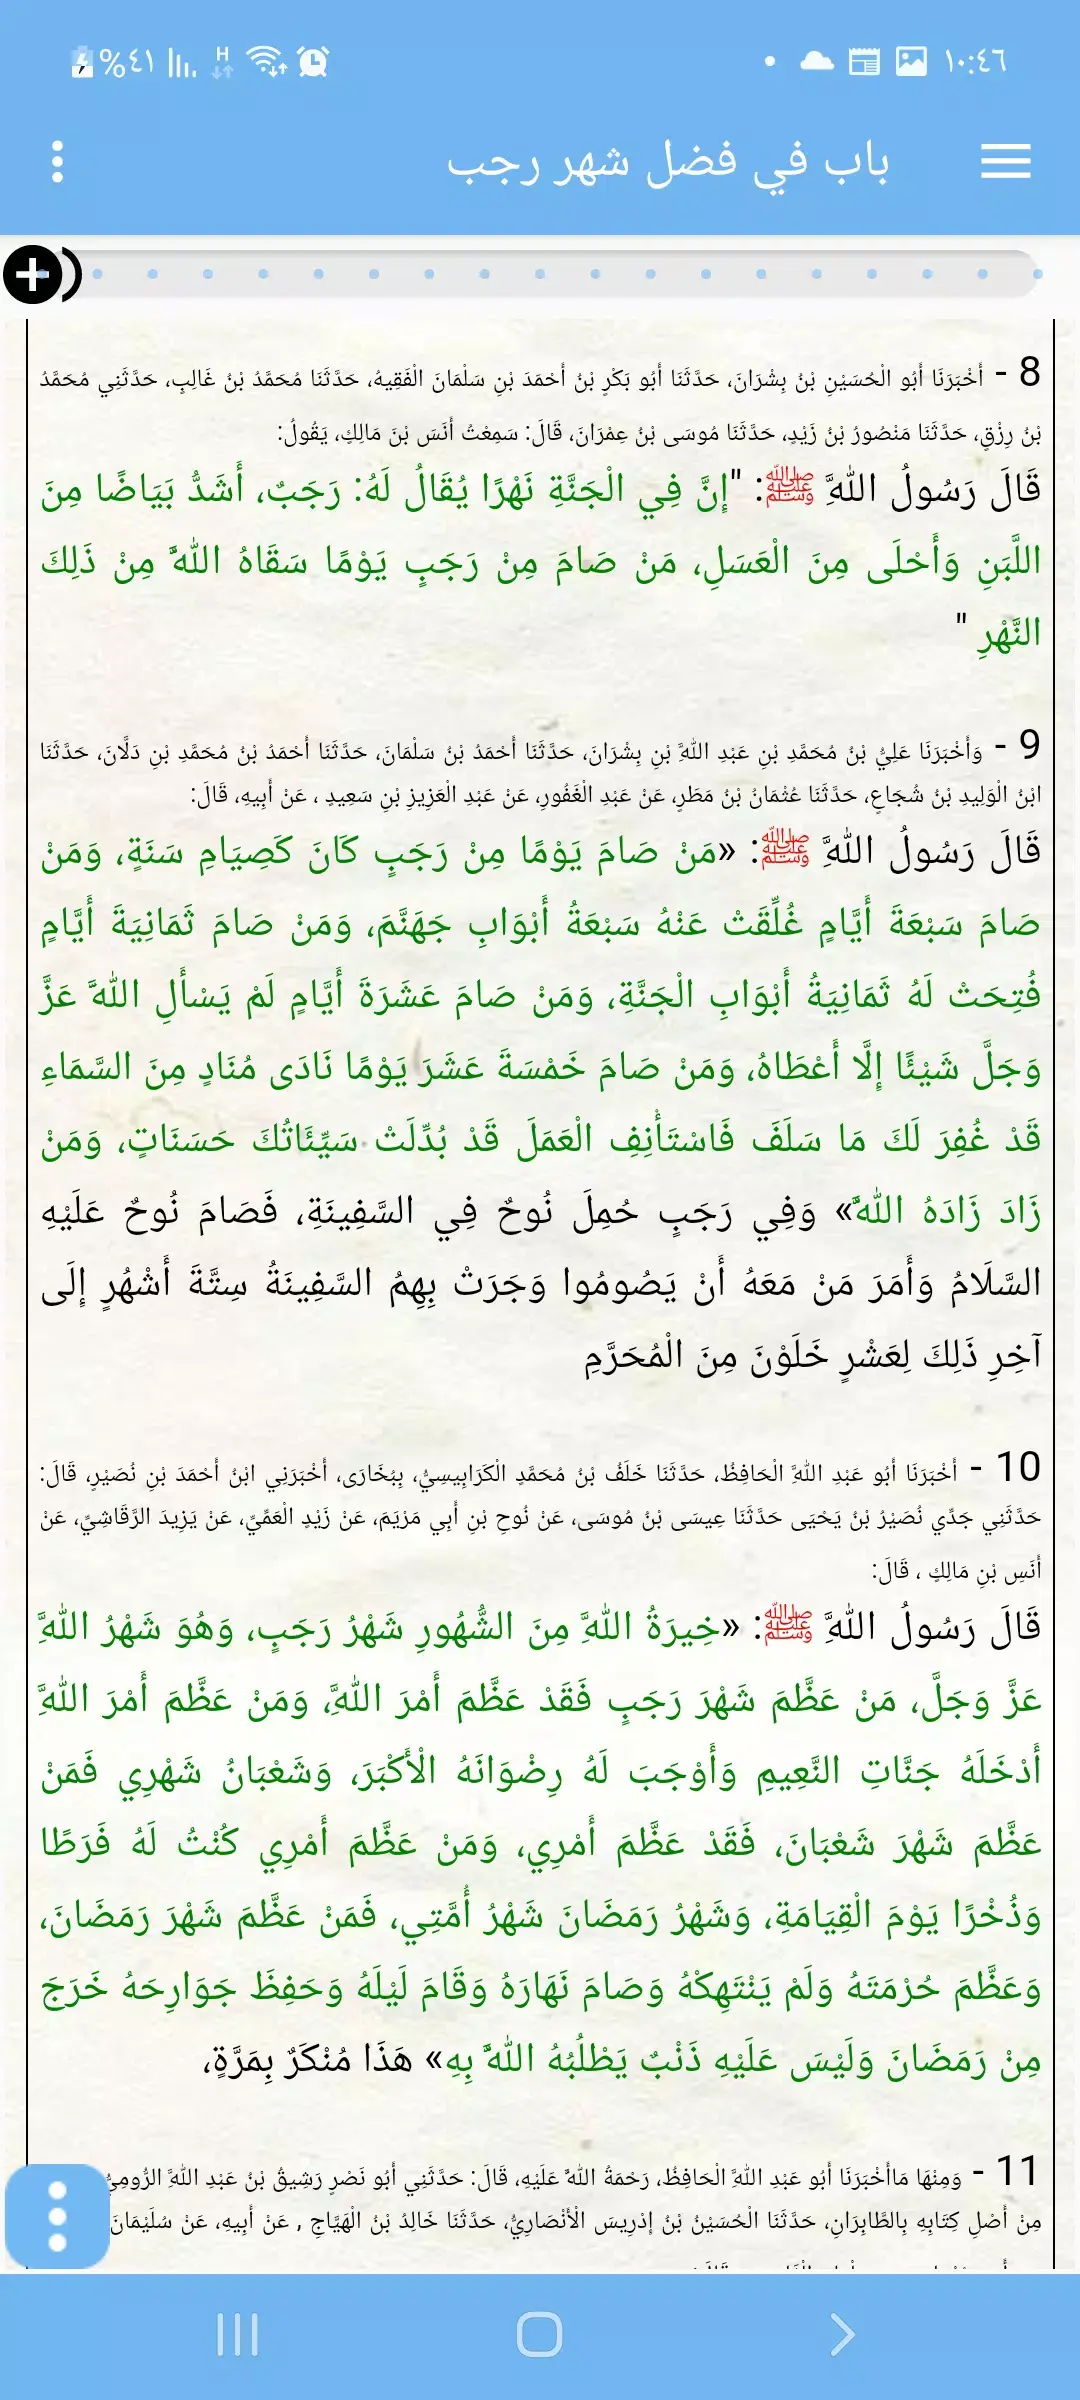 ١٠:٤٦
%٤١
H
باب في فضل شهر رجب
8 - أَخْبَرَنَا أَبُو الْحُسَيْنِ بْنُ بِشْرَانَ، حَدَّثَنَا أَبُو بَكْرِ بْنُ أَحْمَدَ بْنِ سَلْمَانَ الْفَقِيهُ، حَدَّثَنَا مُحَمَّدُ بْنُ غَالِبٍ، حَدَّثَنِي مُحَمَّدُ
بْنُ رِزْقٍ، حَدَّثَنَا مَنْصُورُ بْنُ زَيْدٍ، حَدَّثَنَا مُوسَى بْنُ عِمْرَانَ، قَالَ: سَمِعْتُ أَنَسَ بْنَ مَالِكٍ، يَقُولُ:
قَالَ رَسُولُ اللَّهِ ﷺ: "إِنَّ فِي الْجَنَّةِ نَهْرًا يُقَالُ لَهُ: رَجَبٌ، أَشَدُّ بَيَاضًا مِنَ
اللَّبَنِ وَأَحْلَى مِنَ الْعَسَلِ، مَنْ صَامَ مِنْ رَجَبٍ يَوْمًا سَقَاهُ اللَّهُ مِنْ ذَلِكَ
النَّهْرِ "
9 - وَأَخْبَرَنَا عَلِيُّ بْنُ مُحَمَّدِ بْنِ عَبْدِ اللَّهِ بْنِ بِشْرَانَ، حَدَّثَنَا أَحْمَدُ بْنُ سَلْمَانَ، حَدَّثَنَا أَحْمَدُ بْنُ مُحَمَّدِ بْنِ دَلَّانَ، حَدَّثَنَا
ابْنُ الْوَلِيدِ بْنُ شُجَاعٍ، حَدَّثَنَا عُثْمَانُ بْنُ مَطَرٍ، عَنْ عَبْدِ الْغَفُورِ، عَنْ عَبْدِ الْعَزِيزِ بْنِ سَعِيدٍ ، عَنْ أَبِيهِ، قَالَ:
قَالَ رَسُولُ اللَّهِ ﷺ: «مَنْ صَامَ يَوْمًا مِنْ رَجَبٍ كَانَ كَصِيَامِ سَنَةٍ، وَمَنْ
صَامَ سَبْعَةَ أَيَّامٍ غُلِّقَتْ عَنْهُ سَبْعَةُ أَبْوَابِ جَهَنَّمَ، وَمَنْ صَامَ ثَمَانِيَةَ أَيَّامٍ
فُتِحَتْ لَهُ ثَمَانِيَةُ أَبْوَابِ الْجَنَّةِ، وَمَنْ صَامَ عَشَرَةَ أَيَّامٍ لَمْ يَسْأَلِ اللَّهَ عَزَّ
وَجَلَّ شَيْئًا إِلَّا أَعْطَاهُ، وَمَنْ صَامَ خَمْسَةَ عَشَرَ يَوْمًا نَادَى مُنَادٍ مِنَ السَّمَاءِ
قَدْ غُفِرَ لَكَ مَا سَلَفَ فَاسْتَأْنِفِ الْعَمَلَ قَدْ بُدِّلَتْ سَيِّئَاتُكَ حَسَنَاتٍ، وَمَنْ
زَادَ زَادَهُ اللَّهُ» وَفِي رَجَبٍ حُمِلَ نُوحٌ فِي السَّفِينَةِ، فَصَامَ نُوحٌ عَلَيْهِ
السَّلَامُ وَأَمَرَ مَنْ مَعَهُ أَنْ يَصُومُوا وَجَرَتْ بِهِمُ السَّفِينَةُ سِتَّةَ أَشْهُرٍ إِلَى
آخِرِ ذَلِكَ لِعَشْرٍ خَلَوْنَ مِنَ الْمُحَرَّمِ
10 - أَخْبَرَنَا أَبُو عَبْدِ اللَّهِ الْحَافِظُ، حَدَّثَنَا خَلَفُ بْنُ مُحَمَّدٍ الْكَرَابِيسِيُّ، بِبُخَارَى، أَخْبَرَنِي ابْنُ أَحْمَدَ بْنِ نُصَيْرٍ، قَالَ:
حَدَّثَنِي جَدِّي نُصَيْرُ بْنُ يَحْيَى حَدَّثَنَا عِيسَى بْنُ مُوسَى، عَنْ نُوحِ بْنِ أَبِي مَرْيَمَ، عَنْ زَيْدٍ الْعَمِّيِّ، عَنْ يَزِيدَ الرَّقَاشِيِّ، عَنْ
أَنَسِ بْنِ مَالِكٍ ، قَالَ:
قَالَ رَسُولُ اللَّهِ ﷺ: «خِيرَةُ اللَّهِ مِنَ الشُّهُورِ شَهْرُ رَجَبٍ، وَهُوَ شَهْرُ اللَّهِ
عَزَّ وَجَلَّ، مَنْ عَظَّمَ شَهْرَ رَجَبٍ فَقَدْ عَظَّمَ أَمْرَ اللَّهِ، وَمَنْ عَظَّمَ أَمْرَ اللَّهِ
أَدْخَلَهُ جَنَّاتِ النَّعِيمِ وَأَوْجَبَ لَهُ رِضْوَانَهُ الْأَكْبَرَ، وَشَعْبَانُ شَهْرِي فَمَنْ
عَظَّمَ شَهْرَ شَعْبَانَ، فَقَدْ عَظَّمَ أَمْرِي، وَمَنْ عَظَّمَ أَمْرِي كُنْتُ لَهُ فَرَطًا
وَذُخْرًا يَوْمَ الْقِيَامَةِ، وَشَهْرُ رَمَضَانَ شَهْرُ أُمَّتِي، فَمَنْ عَظَّمَ شَهْرَ رَمَضَانَ،
وَعَظَّمَ حُرْمَتَهُ وَلَمْ يَنْتَهِكْهُ وَصَامَ نَهَارَهُ وَقَامَ لَيْلَهُ وَحَفِظَ جَوَارِحَهُ خَرَجَ
مِنْ رَمَضَانَ وَلَيْسَ عَلَيْهِ ذَنْبٌ يَطْلُبُهُ اللَّهُ بِهِ» هَذَا مُنْكَرٌ بِمَرَّةٍ،
11 - وَمِنْهَا مَاأَخْبَرَنَا أَبُو عَبْدِ اللَّهِ الْحَافِظُ، رَحْمَةُ اللَّهِ عَلَيْهِ، قَالَ: حَدَّثَنِي أَبُو نَصْرٍ رَشِيقُ بْنُ عَبْدِ اللَّهِ الرُّومِيُّ
مِنْ أَصْلِ كِتَابِهِ بِالطَّابِرَانِ، حَدَّثَنَا الْحُسَيْنُ بْنُ إِدْرِيسَ الْأَنْصَارِيُّ، حَدَّثَنَا خَالِدُ بْنُ الْهَيَّاجِ , عَنْ أَبِيهِ، عَنْ سُلَيْمَانَ